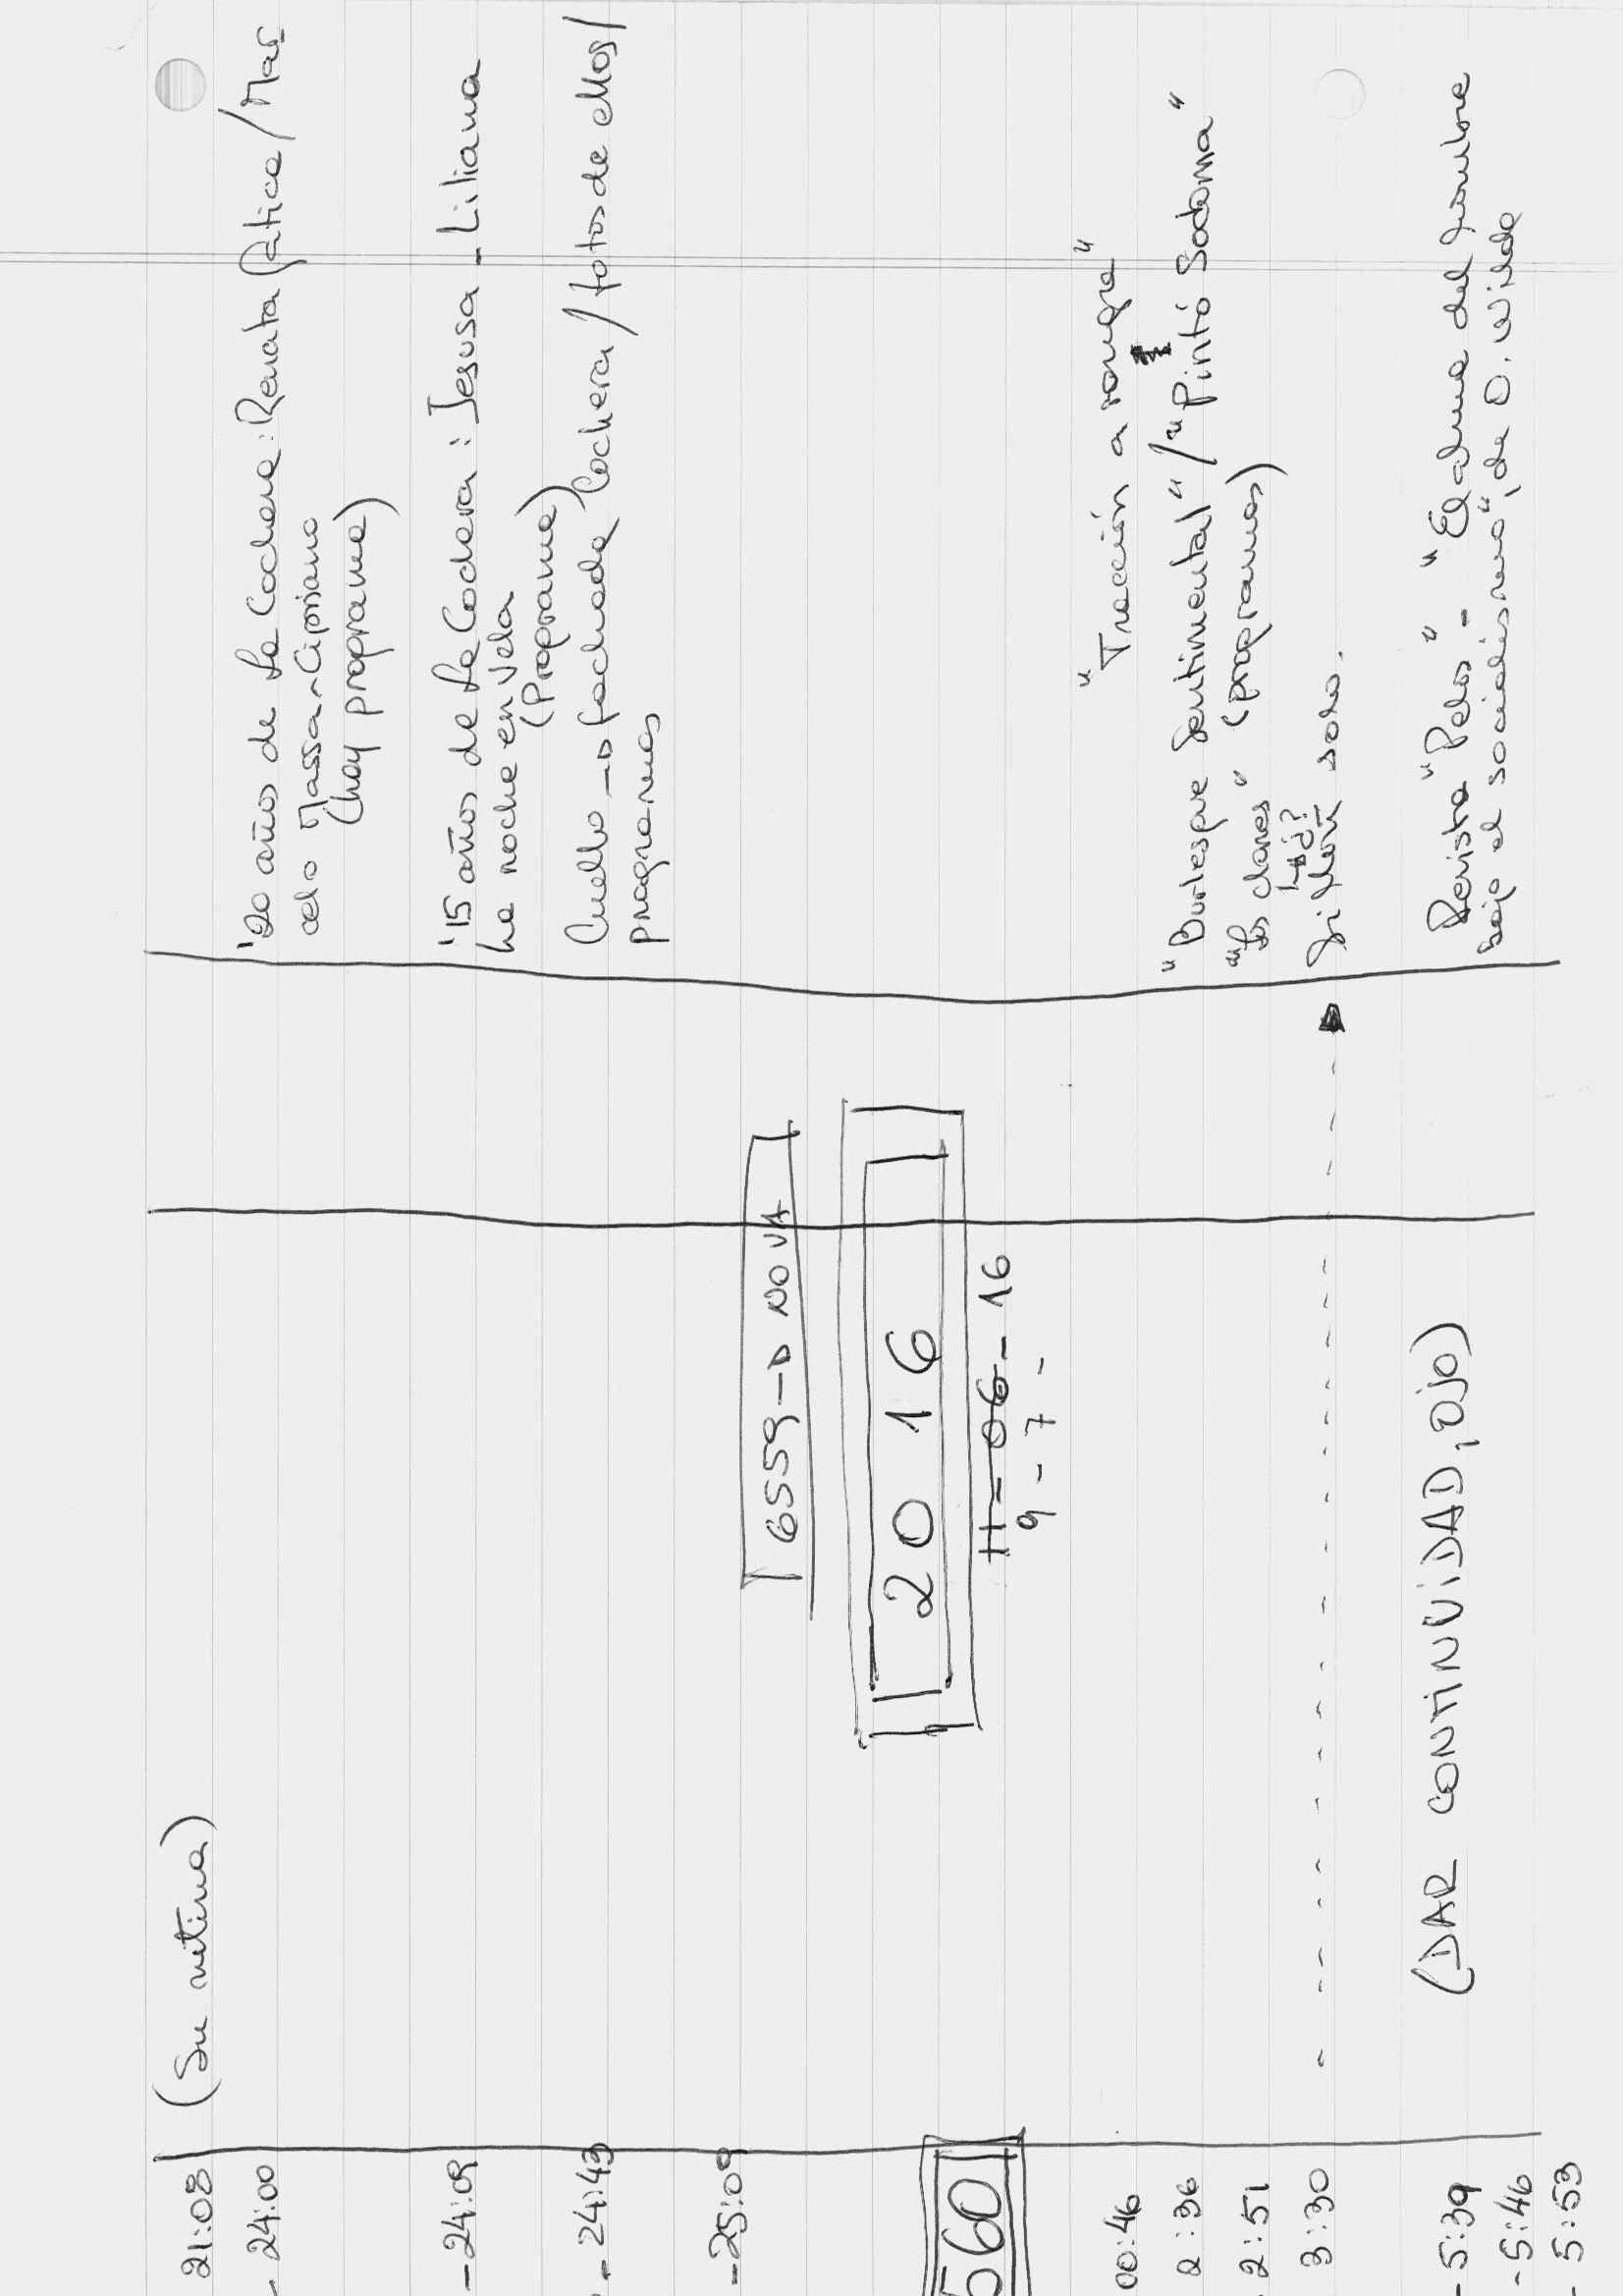 21:08 (Su rutina)
- 24:00 '20 año de La Cochera: Renata fatica / Mar
celo Massa - Cipriano
(hay programa)
- 24:09 '15 años de La Cochera: Jesusa - Liliana
La noche en Vela
(Programa)
- 24:43 Cuello → fachada Cochera / fotos de ellos /
programas
- 25:09
6559 → NO VA
560 2016
11-06-16
9-7-
00:46 "Tracción a sangre"
2:36 "Burlesque Sentimental" / "Pintó Sodoma"
- 2:51 "Los clones" (programas)
3:30 solo.
- 5:39 (DAR CONTINUIDAD, OJO) Revista "Pelos" - "El alma del hombre
- 5:46 bajo el socialismo", de O. Wilde
- 5:53